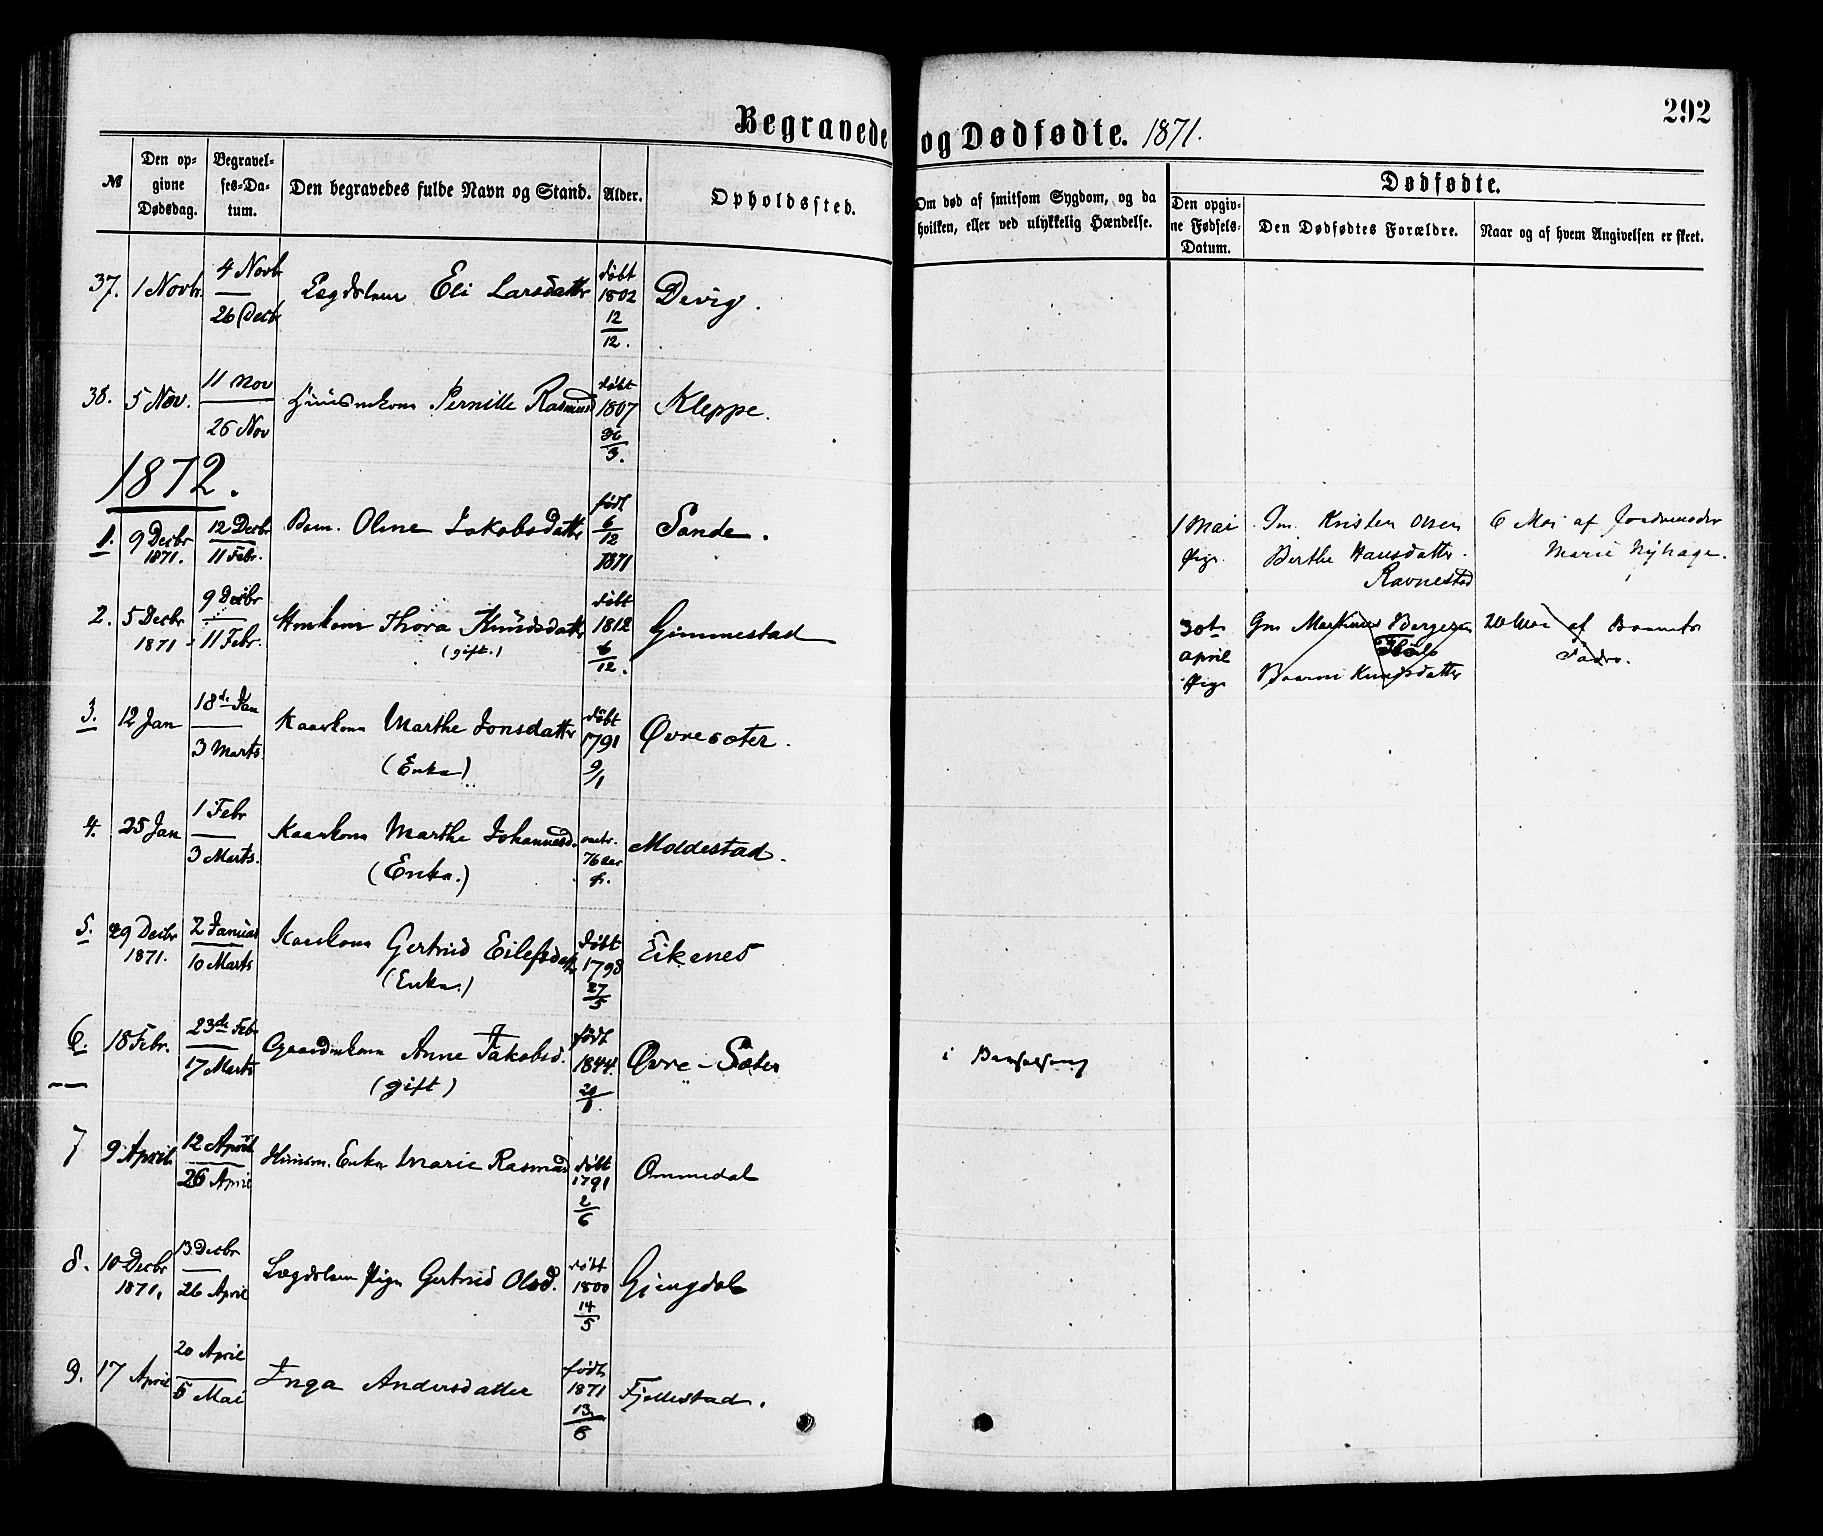 Begravede og Dødfødte. 1871.
292
№
Den opgivne Dødsdag.
Begravelses-Datum.
Den begravedes fulde Navn og Stand.
Alder.
Opholdssted.
Om død af smitsom Sygdom, og da hvilken, eller ved ulykkelig Hændelse.
Dødfødte.
Den opgivne Fødsels-Datum.
Den Dødfødtes Forældre.
Naar og af hvem Angivelsen er skeet.
37. 1 Novbr. 4 Novb Lægdslem Eli Larsdatter døbt Devig.
26 Decbr 1802
12/12.
38. 5 Nov. 11 Nov Huusmkone Pernille Rasmusd døbt Kleppe.
26 Nov 1807
30/3.
1872.
1. 9 Decbr 12 Decbr Barn. Oline Jakobsdatter født Sande.
1871. 11 Febr. 6/12
1871
1 Mai Gm. Kristen Olsen 6 Mai af Jordemoder
Pige Berthe Hansdatter Marie Nyhage.
Ravnestad
2. 5 Decbr 9 Decbr Thora Knudsdatter døbt Gimmestad
1871 11 Febr. (gift.) 1812
6/12.
30te Gm Martinus Bergesen 20 Mai af Barnets
April Fader.
Pige Knudsdatter
3. 12 Jan 18de Jan Kaarkone Marthe Jonsdatter døbt Øvresæter.
3 Marts (Enke) 1791
9/1
4. 25 Jan 1 Febr Kaarkone Marthe Johannesd. Moldestad.
3 Marts. (Enke.) 76 Aar
5. 29 Decbr 2 Januar Kaarkone Gertrud Eilefsdatter døbt Eikenes
1871. 10 Marts (Enke.) 1798
27/5
6. 18 Febr. 23de Feb Gaardmkone Anne Jakobsd. født Øvre-Sæter i Barselseng
17 Marts (gift) 1844.
7 9 April 12 April Huusm. Enke Marie Rasmusd døbt Ommedal
26 April 1791
2/6
8. 10 Decbr 13 Decbr Lægdslem Pige Gertrud Olsd. døbt Gjengdal
1871. 26 April 1800
14/5
9. 17 April 20 April Inga Andersdatter født Fjellestad.
5 Mai 1871
13/8